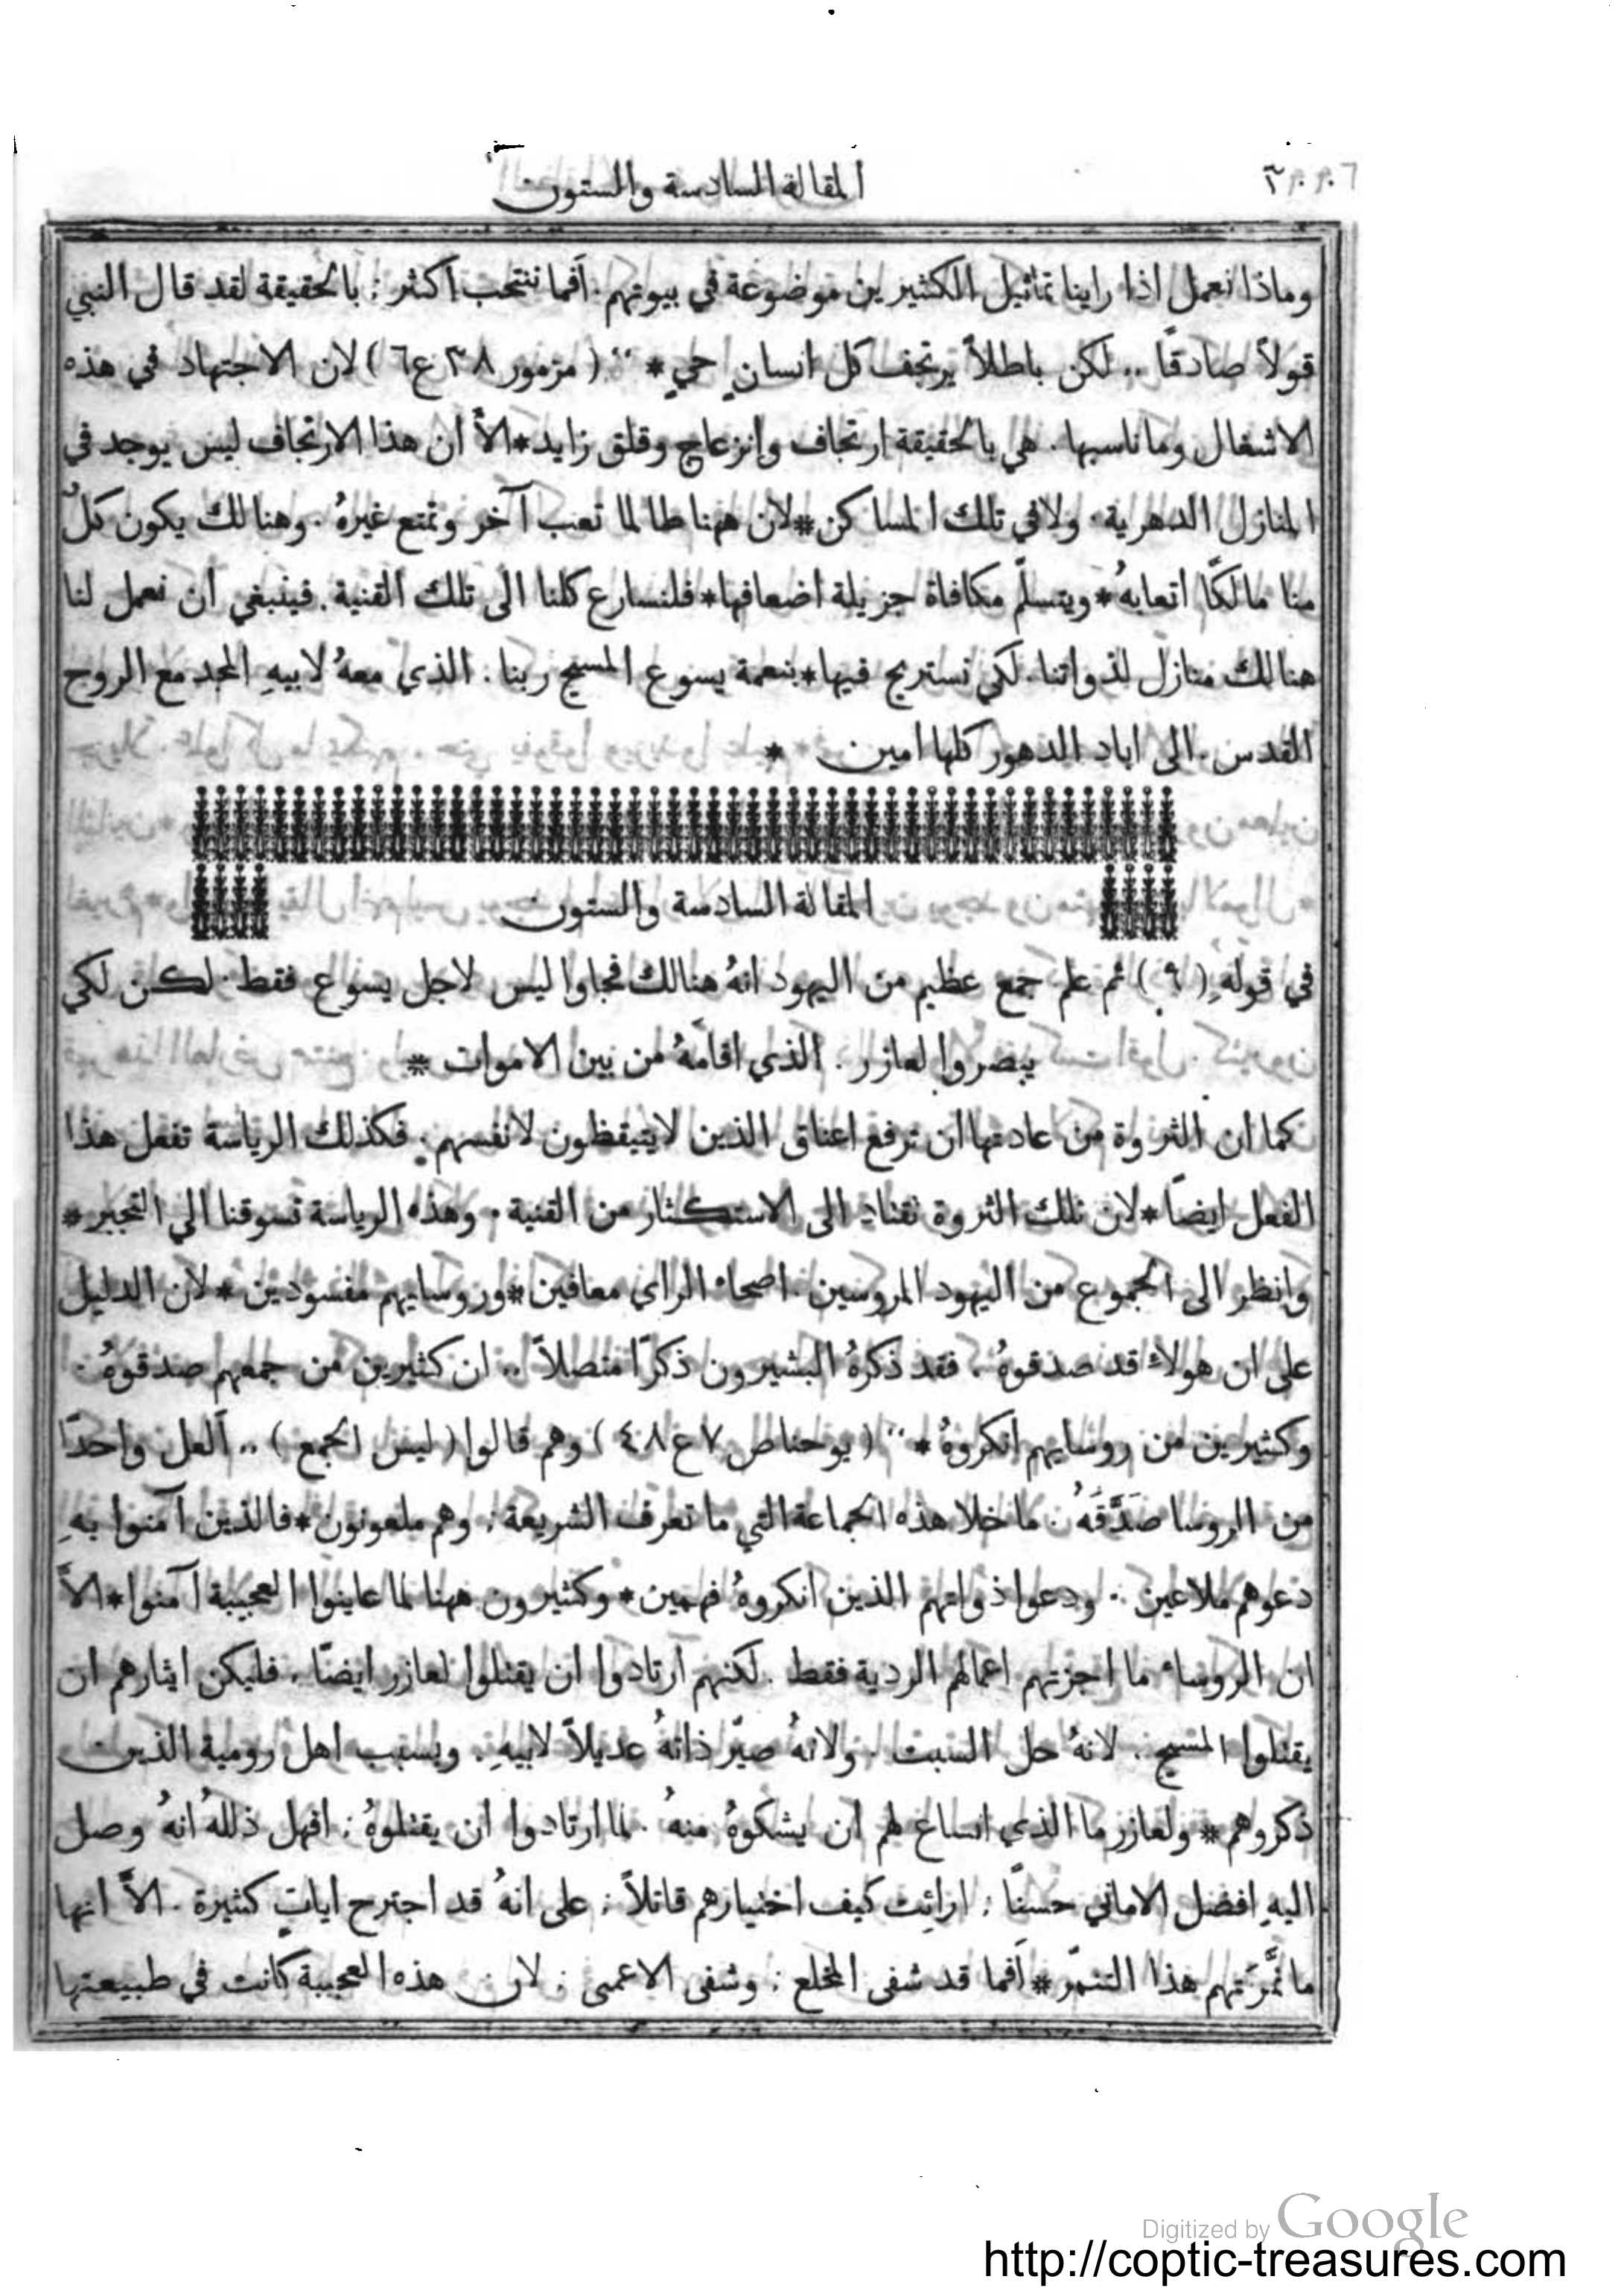 المقالة السادسة والستون
وماذا نعمل اذا راينا تماثيل الكثيرين موضوعة في بيوتهم. أفما ننتحب اكثر: بالحقيقة لقد قال النبي
قولاً صادقًا .. لكن باطلاً يرتجف كل انسانٍ حيٍ * ‘‘ ( مزمور ٣٨ ع ٦ ) لان الاجتهاد في هذه
الاشغال وماناسبها. هي بالحقيقة ارتجاف وانزعاج وقلق زايد * الاَّ ان هذا الارتجاف ليس يوجد في
المنازل الدهرية. ولا في تلك المساكن * لان ههنا طالما تعب آخر وتمتع غيرهُ. وهنالك يكون كلٌ
منا مالكًا اتعابهُ * ويتسلَّم مكافاة جزيلة اضعافها * فلنسارع كلنا الى تلك القنية. فينبغي ان نعمل لنا
هنالك منازل لذواتنا. لكي نستريح فيها * بنعمة يسوع المسيح ربنا. الذي معهُ لابيهِ المجد مع الروح
القدس. الى اباد الدهور كلها امين *
المقالة السادسة والستون
في قولهِ ( ٩ ) ثم علم جمع عظيم من اليهود انهُ هنالك فجاوا ليس لاجل يسوع فقط. لكن لكي
يبصروا لعازر. الذي اقامهُ من بين الاموات *
كما ان الثروة من عادتها ان ترفع اعناق الذين لا يتيقظون لانفسهم. فكذلك الرياسة تفعل هذا
الفعل ايضًا * لان تلك الثروة تقتاد الى الاستكثار من القنية. وهذه الرياسة تسوقنا الي التجبر *
وانظر الى الجموع من اليهود المروسين. اصحاء الراي معافين * وروسايهم مفسودين * لان الدليل
على ان هولاء قد صدقوهُ. فقد ذكرهُ البشيرون ذكرًا متصلاً .. ان كثيرين من جمعهم صدقوهُ.
وكثيرين من روسايهم انكروهُ * ‘‘ ( يوحنا ص ٧ ع ٤٨ ) وهم قالوا ( ليس الجمع ) .. ألعل واحدًا
من الروسا صَدَّقَهُ. ما خلا هذه الجماعة التي ما تعرف الشريعة: وهم ملعونون * فالذين آمنوا بهِ
دعوهم ملاعين. ودعوا ذواتهم الذين انكروهُ فهمين * وكثيرون ههنا لما عاينوا العجيبة آمنوا * الاَّ
ان الروساء ما اجزتهم اعمالهم الردية فقط. لكنهم ارتادوا ان يقتلوا لعازر ايضًا. فليكن ايثارهم ان
يقتلوا المسيح. لانهُ حل السبت. ولانهُ صيّر ذاتهُ عديلاً لابيهِ. وبسبب اهل رومية الذين
ذكروهم * ولعازر ما الذي انساغ لهم ان يشكوهُ منهُ. لما ارتادوا ان يقتلوهُ: افهل ذلله انهُ وصل
اليهِ افضل الاماني حسنًا: ارائت كيف اختيارهم قاتلاً: على انهُ قد اجترح اياتٍ كثيرة. الاَّ انها
ما نمَّرَتهم هذا التنمّر * أفما قد شفى المخلع: وشفى الاعمى: لان هذه العجيبة كانت في طبيعتها
Digitized by Google
http://coptic-treasures.com